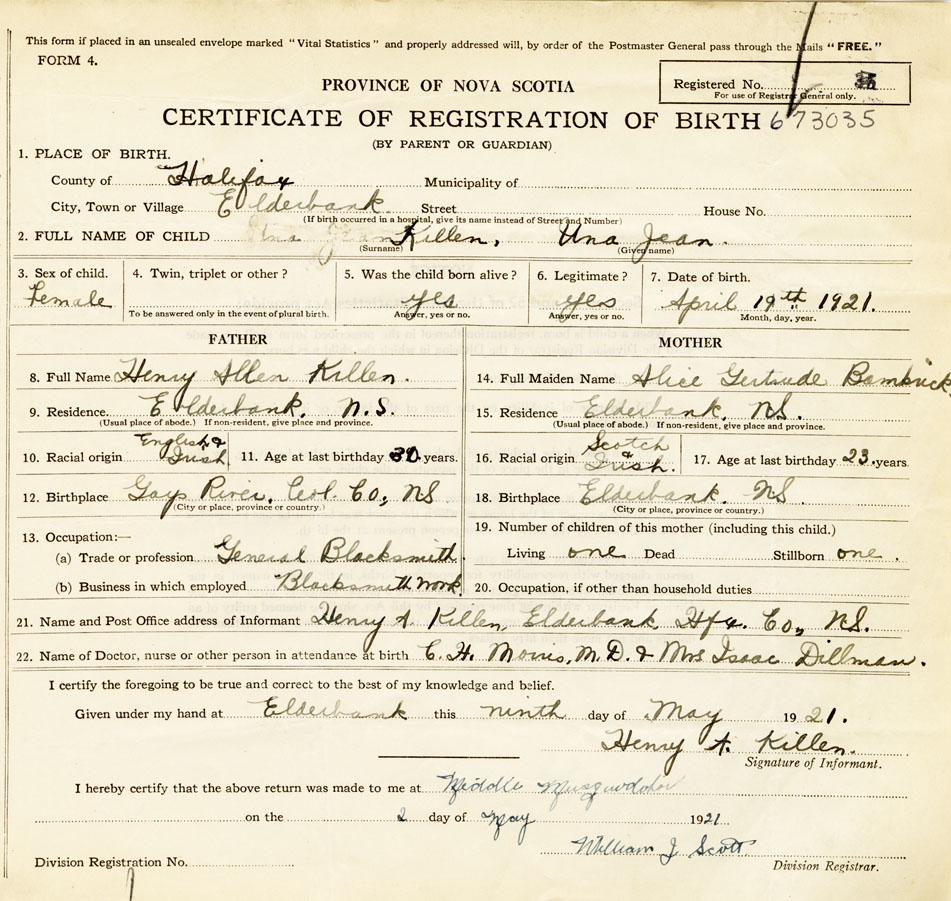 This form if placed in an unsealed envelope marked "Vital Statistics" and properly addressed will, by order of the Postmaster General pass through the Mails "FREE."
FORM 4.
PROVINCE OF NOVA SCOTIA
Registered No.
For use of Registrar General only.
CERTIFICATE OF REGISTRATION OF BIRTH 673035
(BY PARENT OR GUARDIAN)
1. PLACE OF BIRTH.
County of Halifax Municipality of
City, Town or Village Elderbank Street House No.
(If birth occurred in a hospital, give its name instead of Street and Number)
2. FULL NAME OF CHILD Killen, Una Jean.
(Surname) (Given name)
3. Sex of child. 4. Twin, triplet or other? 5. Was the child born alive? 6. Legitimate? 7. Date of birth.
Female yes yes April 19th 1921.
To be answered only in the event of plural birth. Answer, yes or no. Answer, yes or no. Month, day, year.
FATHER MOTHER
8. Full Name Henry Allen Killen. 14. Full Maiden Name Alice Gertrude Bambrick
9. Residence. Elderbank, N.S. 15. Residence Elderbank, NS.
(Usual place of abode.) If non-resident, give place and province. (Usual place of abode.) If non-resident, give place and province.
10. Racial origin English & Irish 11. Age at last birthday years. 16. Racial origin Scotch & Irish. 17. Age at last birthday 23 years.
12. Birthplace Gays River, Col. Co, NS 18. Birthplace Elderbank. NS
(City or place, province or country.) (City or place, province or country.)
13. Occupation:— 19. Number of children of this mother (including this child.)
(a) Trade or profession General Blacksmith. Living one Dead Stillborn one.
(b) Business in which employed Blacksmith work 20. Occupation, if other than household duties
21. Name and Post Office address of Informant Henry A Killen, Elderbank, Hfx. Co, NS.
22. Name of Doctor, nurse or other person in attendance at birth C. H. Morris, M.D. & Mrs Isaac Dillman.
I certify the foregoing to be true and correct to the best of my knowledge and belief.
Given under my hand at Elderbank this ninth day of May 1921.
Henry A. Killen.
Signature of Informant.
I hereby certify that the above return was made to me at Middle Musquodoboit
on the 2 day of May 1921
William J Scott
Division Registration No.
Division Registrar.